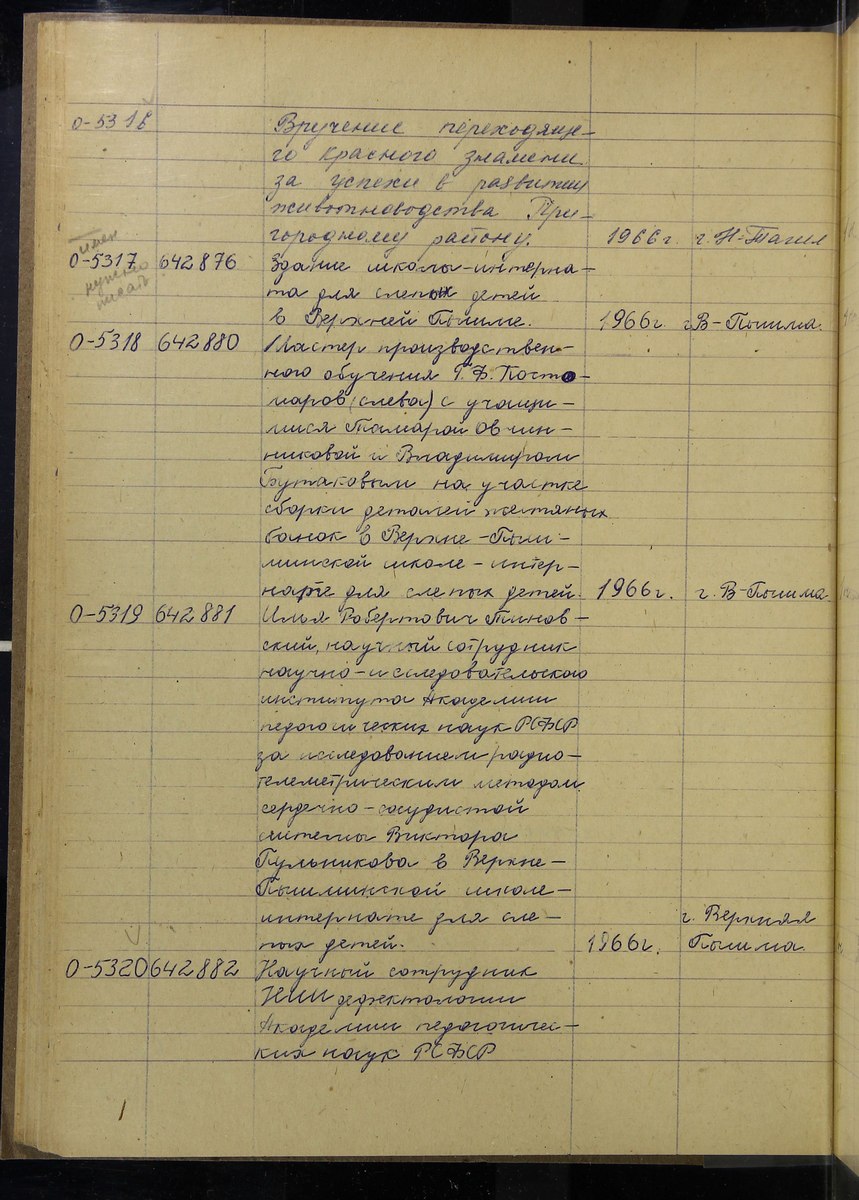 0-5316 Вручение переходяще-
го красного знамени
за успехи в развитии
животноводства При-
городному району. 1966г. г. Н-Тагил
0-5317 642876 Здание школы-интерна-
нужно
писать
та для слепых детей
в Верхней Пышме. 1966г. г. В-Пышма.
0-5318 642880 Мастер производствен-
ного обучения Г.Ф. Косто-
маров (слева) с учащи-
мися Тамарой Овчин-
никовой и Владимиром
Бутаковым на участке
сборки деталей жестяных
банок в Верхне-Пыш-
минской школе-интер-
нате для слепых детей. 1966г. г. В-Пышма
0-5319 642881 Илья Робертович Тинов-
ский, научный сотрудник
научно-исследовательского
института Академии
педагогических наук РСФСР
за исследованием радио-
телеметрическим методом
сердечно-сосудистой
системы Виктора
Пульникова в Верхне-
Пышминской школе-
интернате для сле-
пых детей. 1966г. г. Верхняя
Пышма.
0-5320 642882 Научный сотрудник
НИИ дефектологии
Академии педагогичес-
ких наук РСФСР